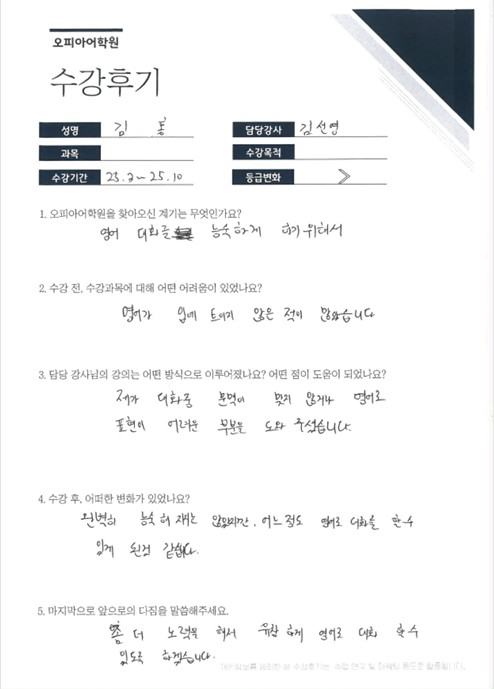 오피아어학원
수강후기
성명 김 홍 담당강사 김선영
과목 수강목적
수강기간 23.2~25.10 등급변화 >
1. 오피아어학원을 찾아오신 계기는 무엇인가요?
영어 대화를 능숙하게 하기 위해서
2. 수강 전, 수강과목에 대해 어떤 어려움이 있었나요?
영어가 입에 트이지 않은 적이 많았습니다
3. 담당 강사님의 강의는 어떤 방식으로 이루어졌나요? 어떤 점이 도움이 되었나요?
제가 대화중 문맥이 맞지 않거나 영어로
표현이 어려운 부분을 도와 주셨습니다.
4. 수강 후, 어떠한 변화가 있었나요?
완벽히 능숙해 지지는 않았지만, 어느정도 영어로 대화를 할수
있게 된것 같습니다.
5. 마지막으로 앞으로의 다짐을 말씀해주세요.
좀 더 노력을 해서 유창하게 영어로 대화 할수
있도록 하겠습니다.
수강후기는, 수업 연구 및 마케팅 용도로 활용됩니다.